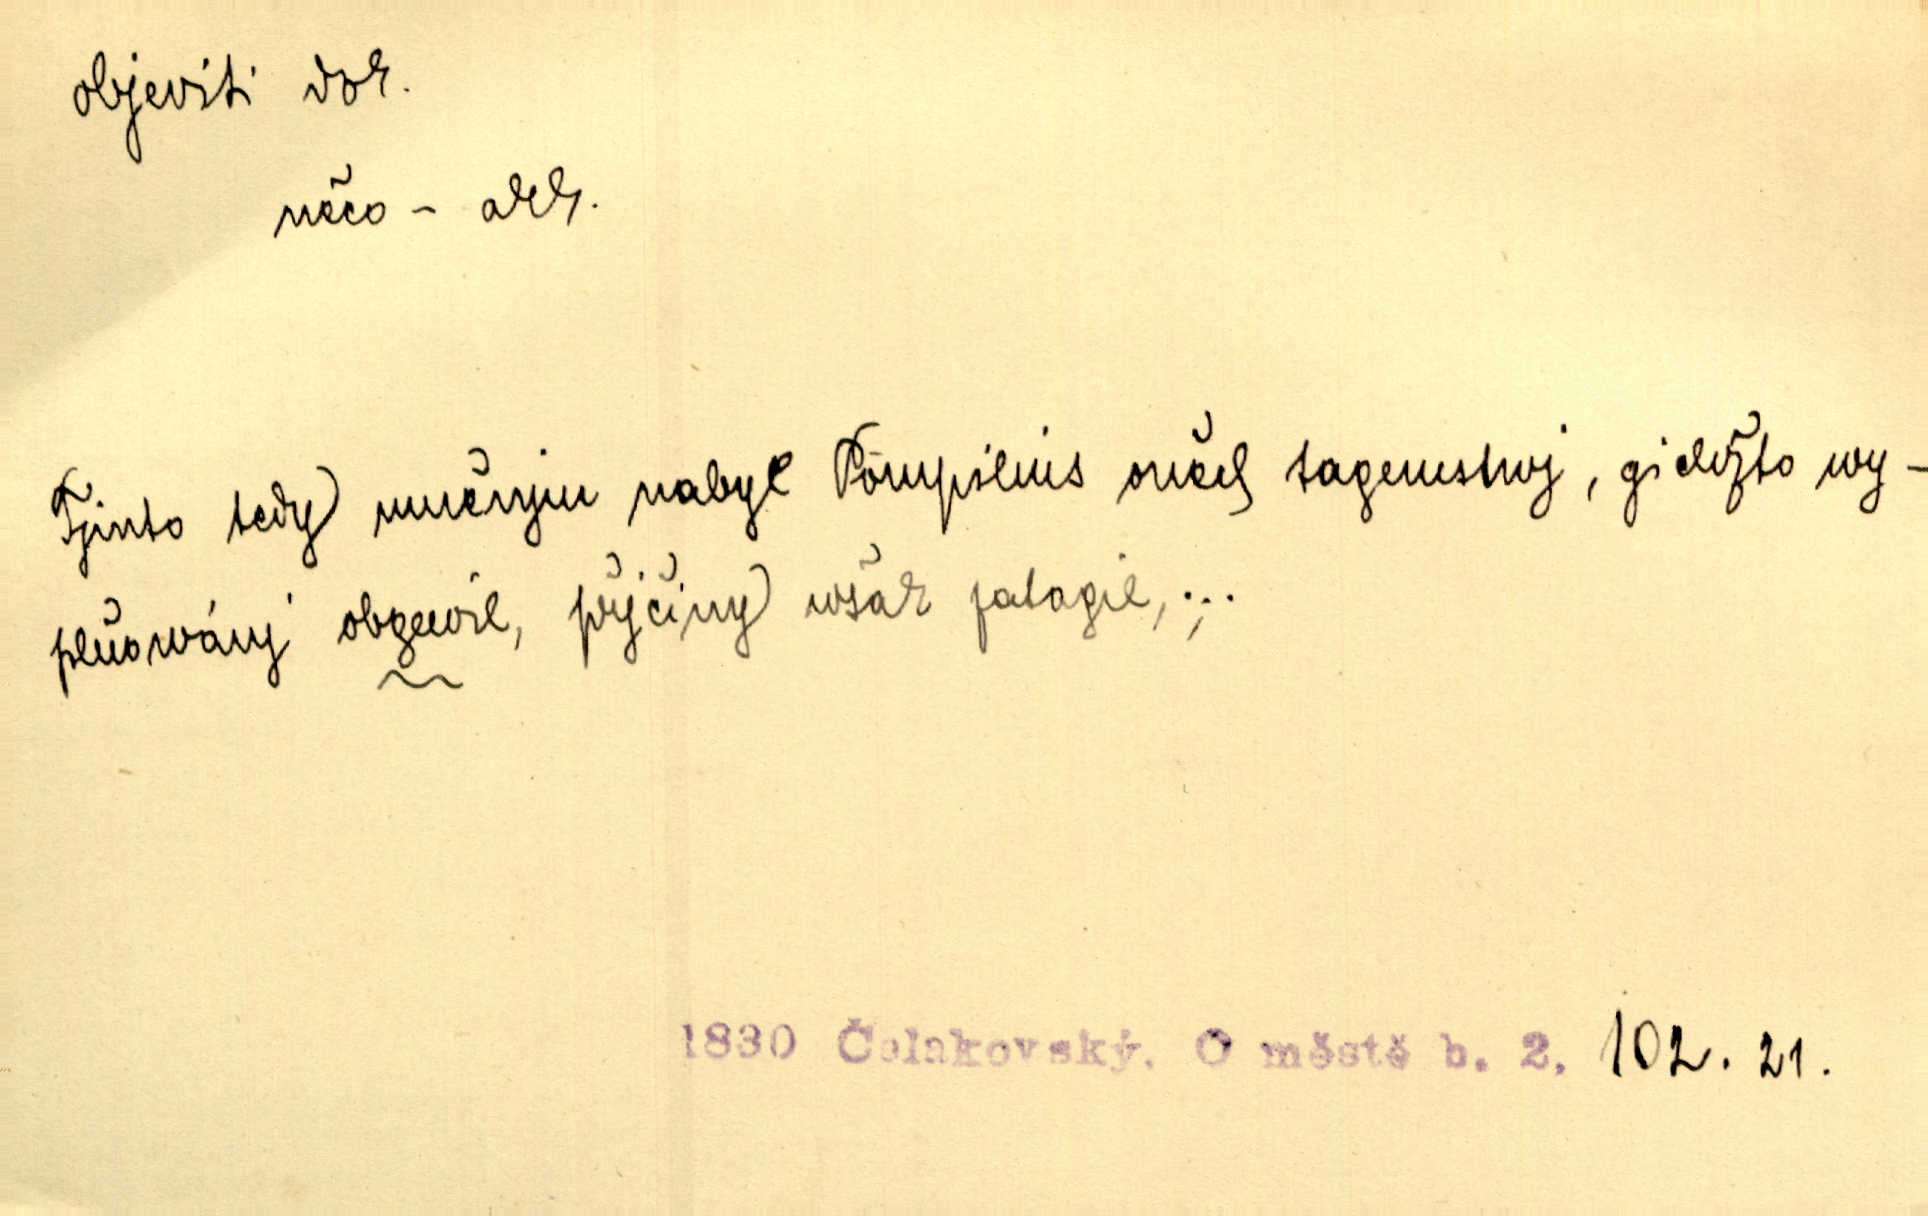 objeviti dok.
něco - akk.
Tjmto tedy uměnjm nabyl Pompilius oněch tagemstwj, gichžto wy-
plňowánj obgewil, přjčiny wšak zatagil,...
1830 Čelakovský. O městě b. 2. 102. 21.